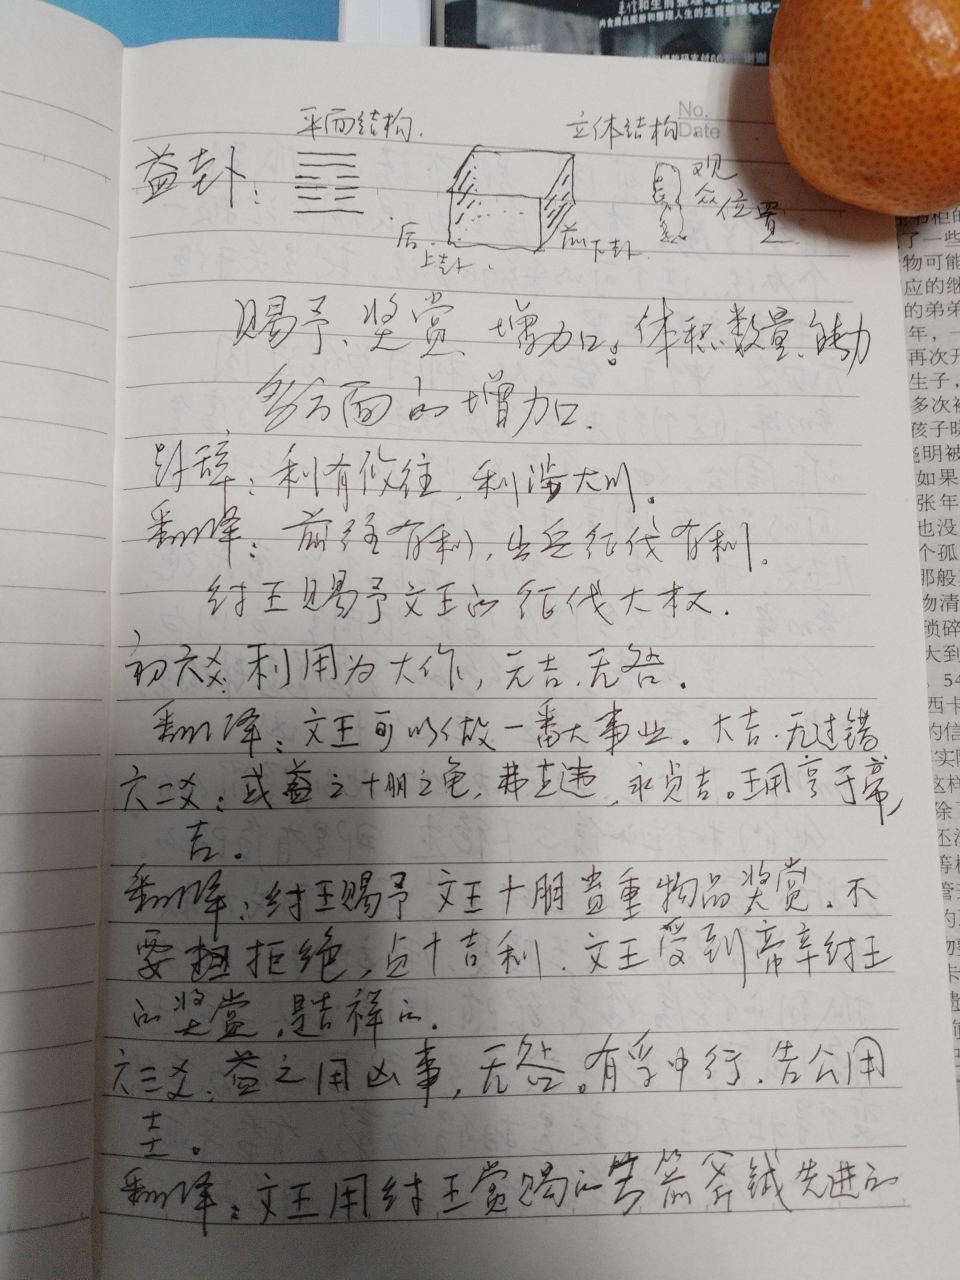 No.
Date
平面结构.
立体结构
益卦:
观
众
位置
后
上卦
前下卦
赐予、奖赏、增加。体积、数量、能力
多方面的增加.
卦辞:利有攸往,利涉大川。
翻译:前往有利,出兵征伐有利。
纣王赐予文王的征伐大权.
初六爻:利用为大作,元吉.无咎.
翻译:文王可以做一番大事业。大吉.无过错
六二爻:或益之十朋之龟,弗克违,永贞吉。王用享于帝,
吉。
翻译:纣王赐予文王十朋贵重物品奖赏.不
要拒绝,占卜吉利.文王受到帝辛纣王
的奖赏,是吉祥的.
六三爻:益之用凶事,无咎。有孚中行.告公用
圭。
翻译:文王用纣王赏赐的弓箭斧钺先进的
物可能
应的继
的弟弟
再次开
生子,
多次被
孩子晓
晓明被
如果
张年
也没
个孤
那般
物清
琐碎
大到
西卡
的信
实际
这样